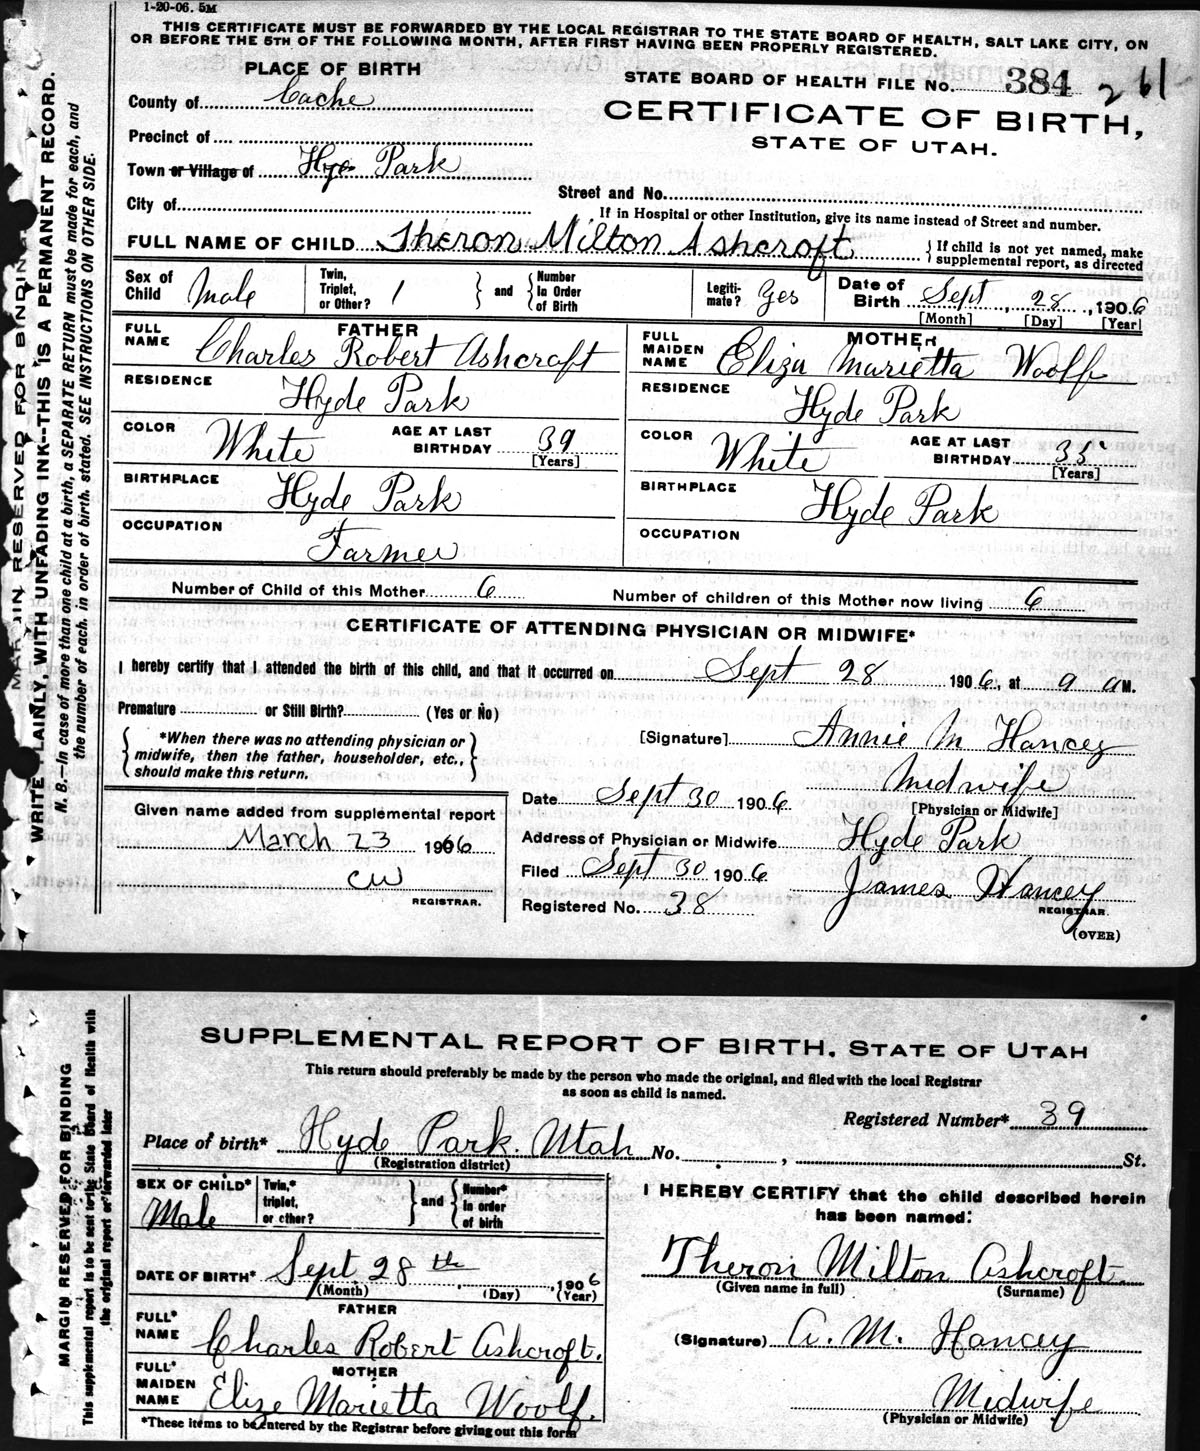 1-20-06. 5M
THIS CERTIFICATE MUST BE FORWARDED BY THE LOCAL REGISTRAR TO THE STATE BOARD OF HEALTH, SALT LAKE CITY, ON
OR BEFORE THE 5TH OF THE FOLLOWING MONTH, AFTER FIRST HAVING BEEN PROPERLY REGISTERED.
PLACE OF BIRTH
STATE BOARD OF HEALTH FILE No. 384 261
County of Cache
CERTIFICATE OF BIRTH,
STATE OF UTAH.
Precinct of
Town or Village of Hyde Park
Street and No.
City of
If in Hospital or other Institution, give its name instead of Street and number.
FULL NAME OF CHILD Theron Milton Ashcroft } If child is not yet named, make supplemental report, as directed
Sex of Child Male Twin, Triplet, or Other? 1 } and { Number In Order of Birth Legiti- mate? Yes Date of Birth Sept 28, 1906
[Month] [Day] [Year]
FATHER
FULL NAME Charles Robert Ashcroft
RESIDENCE Hyde Park
COLOR White AGE AT LAST BIRTHDAY 39 [Years]
BIRTHPLACE Hyde Park
OCCUPATION Farmer
MOTHER
FULL MAIDEN NAME Eliza Marietta Woolf
RESIDENCE Hyde Park
COLOR White AGE AT LAST BIRTHDAY 35 [Years]
BIRTHPLACE Hyde Park
OCCUPATION
Number of Child of this Mother 6 Number of children of this Mother now living 6
CERTIFICATE OF ATTENDING PHYSICIAN OR MIDWIFE*
I hereby certify that I attended the birth of this child, and that it occurred on Sept 28 1906, at 9 a M.
Premature or Still Birth? (Yes or No)
{ *When there was no attending physician or
midwife, then the father, householder, etc.,
should make this return. }
[Signature] Annie M Hancey
Midwife
[Physician or Midwife]
Given name added from supplemental report
March 23 1966
CW
REGISTRAR.
Date Sept 30 1906
Address of Physician or Midwife Hyde Park
Filed Sept 30 1906 James Hancey
REGISTRAR.
Registered No. 38
(OVER)
MARGIN RESERVED FOR BINDING
WRITE PLAINLY, WITH UNFADING INK--THIS IS A PERMANENT RECORD.
N. B.--In case of more than one child at a birth, a SEPARATE RETURN must be made for each, and
the number of each, in order of birth, stated. SEE INSTRUCTIONS ON OTHER SIDE.
SUPPLEMENTAL REPORT OF BIRTH, STATE OF UTAH
This return should preferably be made by the person who made the original, and filed with the local Registrar
as soon as child is named.
Registered Number* 39
Place of birth* Hyde Park. Utah No. , St.
(Registration district)
SEX OF CHILD* Male Twin,* triplet, or other? } and { Number* in order of birth
DATE OF BIRTH* Sept 28th, 1906
(Month) (Day) (Year)
FATHER
FULL* NAME Charles Robert Ashcroft.
MOTHER
FULL* MAIDEN NAME Eliza Marietta Woolf.
*These items to be entered by the Registrar before giving out this form
I HEREBY CERTIFY that the child described herein
has been named:
Theron Milton Ashcroft
(Given name in full) (Surname)
(Signature) A. M. Hancey
Midwife
(Physician or Midwife)
MARGIN RESERVED FOR BINDING
This supplemental report is to be sent to the State Board of Health with
the original report or forwarded later